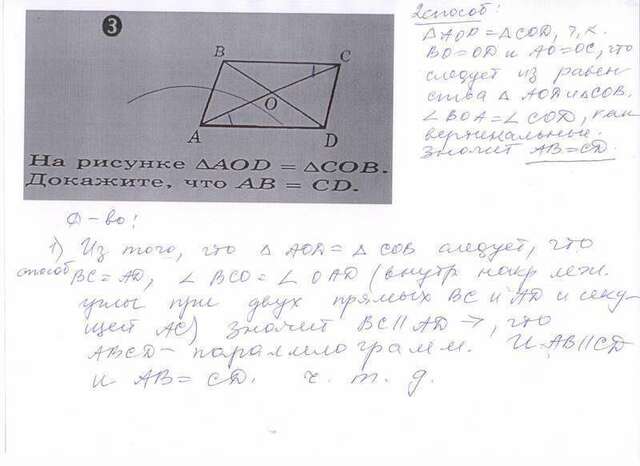 3
B
C
O
A
D
На рисунке △AOD = △COB.
Докажите, что AB = CD.
2 способ:
△ AOD = △ COD, т.к.
BO = OD и AO = OC, что
следует из равен
ства △ AOD и △ COB.
∠ BOA = ∠ COD, как
вертикальные.
Значит AB = CD.
Д-во:
1) Из того, что △ AOD = △ COB следует, что
способ BC = AD, ∠ BCO = ∠ OAD (внутр накр леж.
углы при двух прямых BC и AD и секу-
щей AC) значит BC || AD →, что
ABCD - параллелограмм. И AB || CD
и AB = CD. ч. т. д.